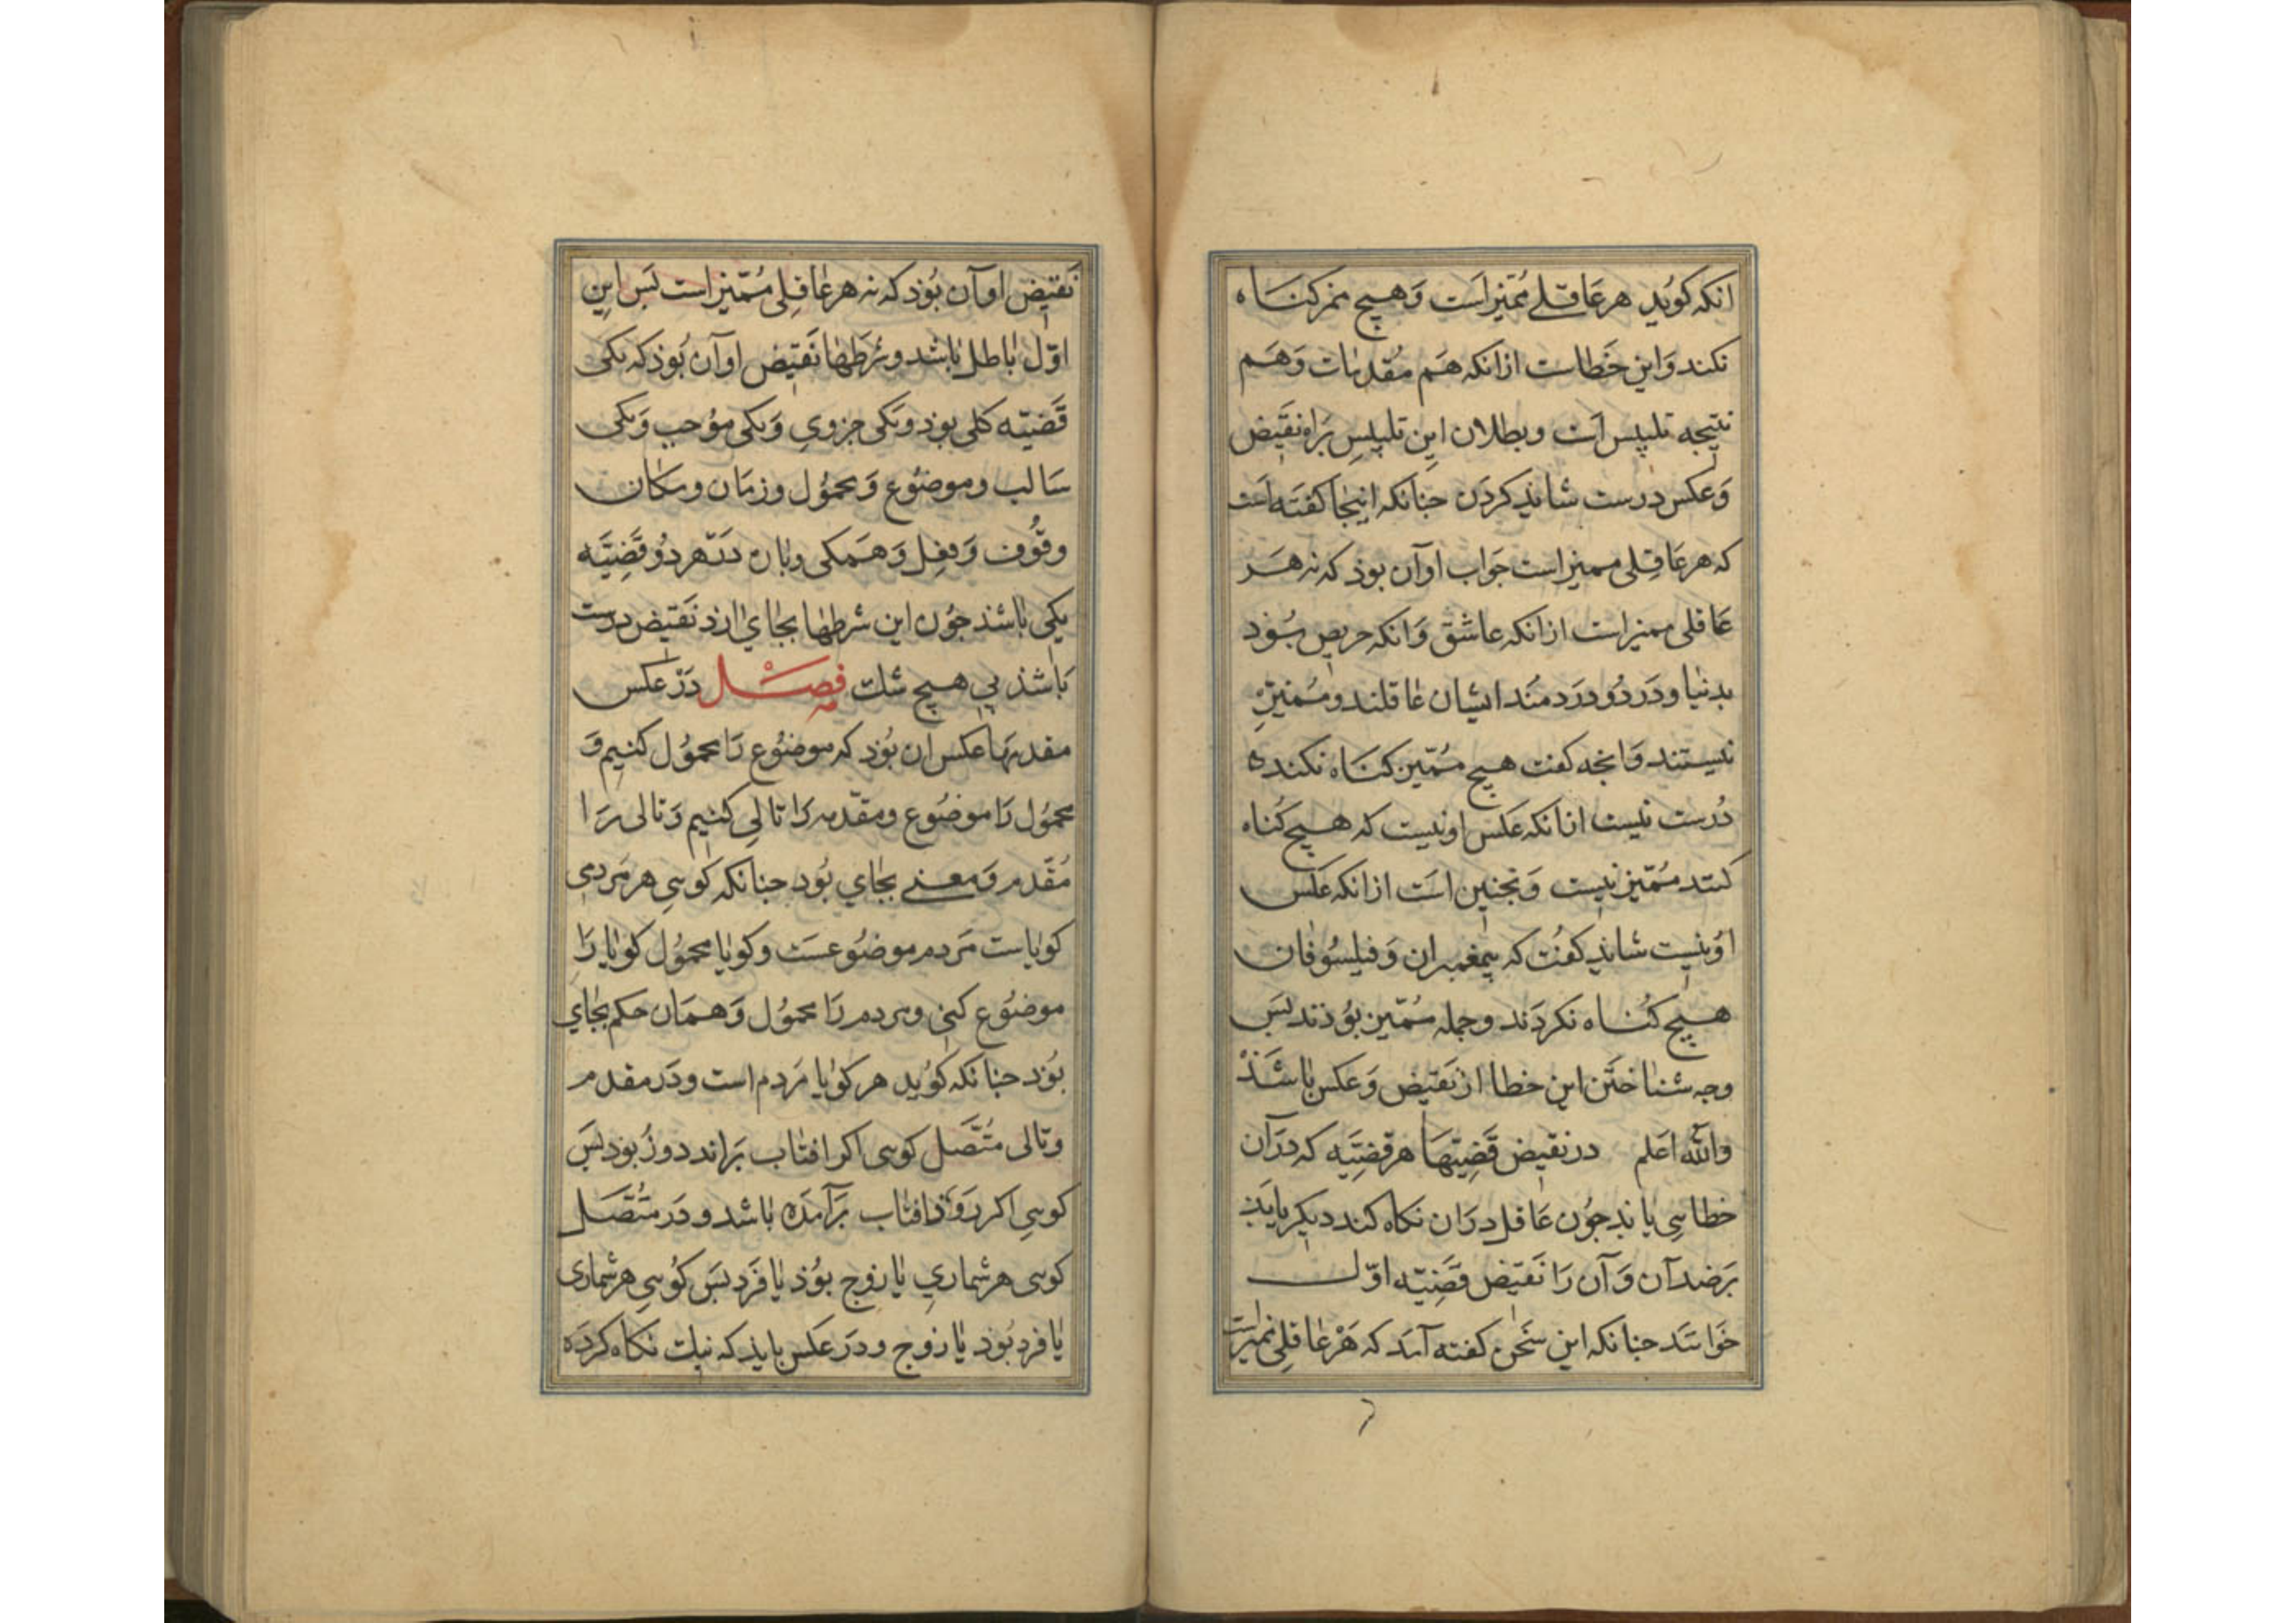 انکه کوید هر عاقلے ممیز است و هیچ ممز کناه
نکند و این خطاست ازانکه هم مقدمات و هم
نتیجه تلبیس است و بطلان این تلبیس براه نقیض
و عکس درست شاید کردن جنانکه اینجا کفته است
که هر عاقلی ممیز است جواب او آن بوذ که نه هر
عاقلی ممیز است ازانکه عاشق و انکه حریص بوذ
بدنیا و درد و دردمند ایشان عاقلند و ممیز
نیستند و انجه کفت هیچ ممیز کناه نکنده
درست نیست ازانکه عکس او نیست که هیچ کناه
کنند ممیز نیست و نجنین است ازانکه عکس
او نیست شاید کفت که پیغمبران و فیلسوفان
هیچ کناه نکردند و جمله ممیز بوذند بس
وجه شناختن این خطا از نقیض و عکس باشذ
والله اعلم در نقیض قضیتها هر قضیه که دران
خطایی یابد جون عاقل دران نکاه کند دیکر یابذ
بر ضد آن و آن را نقیض قضیه اول
خوانند جنانکه این سخن کفته آید که هر عاقلی ممیز است
نقیض او آن بوذ که نه هر عاقلی ممیز است بس این
اول باطل باشد و شرطها نقیض او آن بوذ که یکی
قضیه کلی بوذ و یکی جزوی و یکی موجب و یکی
سالب و موضوع و محمول و زمان و مکان
و قوت و فعل و همکی و بان در هر دو قضیه
یکی باشذ جون این شرطها بجای ارذ نقیض درست
باشذ بی هیچ شک فصل در عکس
مقدمها عکس ان بوذ که موضوع را محمول کنیم و
محمول را موضوع و مقدم را تالی کنیم و تالی را
مقدم و معنے بجای بوذ جنانکه کویی هر مردمی
کویاست مردم موضوعست و کویا محمول کویا را
موضوع کنی و مردم را محمول و همان حکم بجای
بوذ جنانکه کوید هر کویا مردم است و در مقدم
و تالی متصل کویی اکر افتاب براند روز بوذ بس
کویی اکر روز افتاب برآمده باشد و در متصل
کویی هر شماری یا زوج بوذ یا فرد بس کویی هر شماری
یا فرد بوذ یا زوج و در عکس بایذ که نیک نکاه کرده